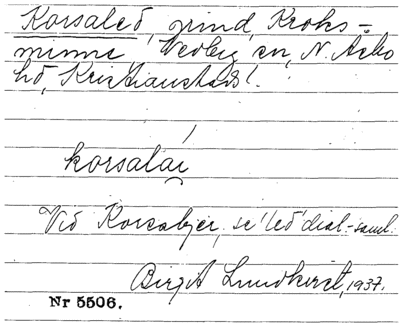 Korsaled, grind, Kroks-
minne, Vedby sn, N. Åsbo
hd, Kristianstads l.
korsalái
Vid Korsabjer, se 'led' dial-saml.
Birgit Lundkvist, 1937.
Nr 5506.